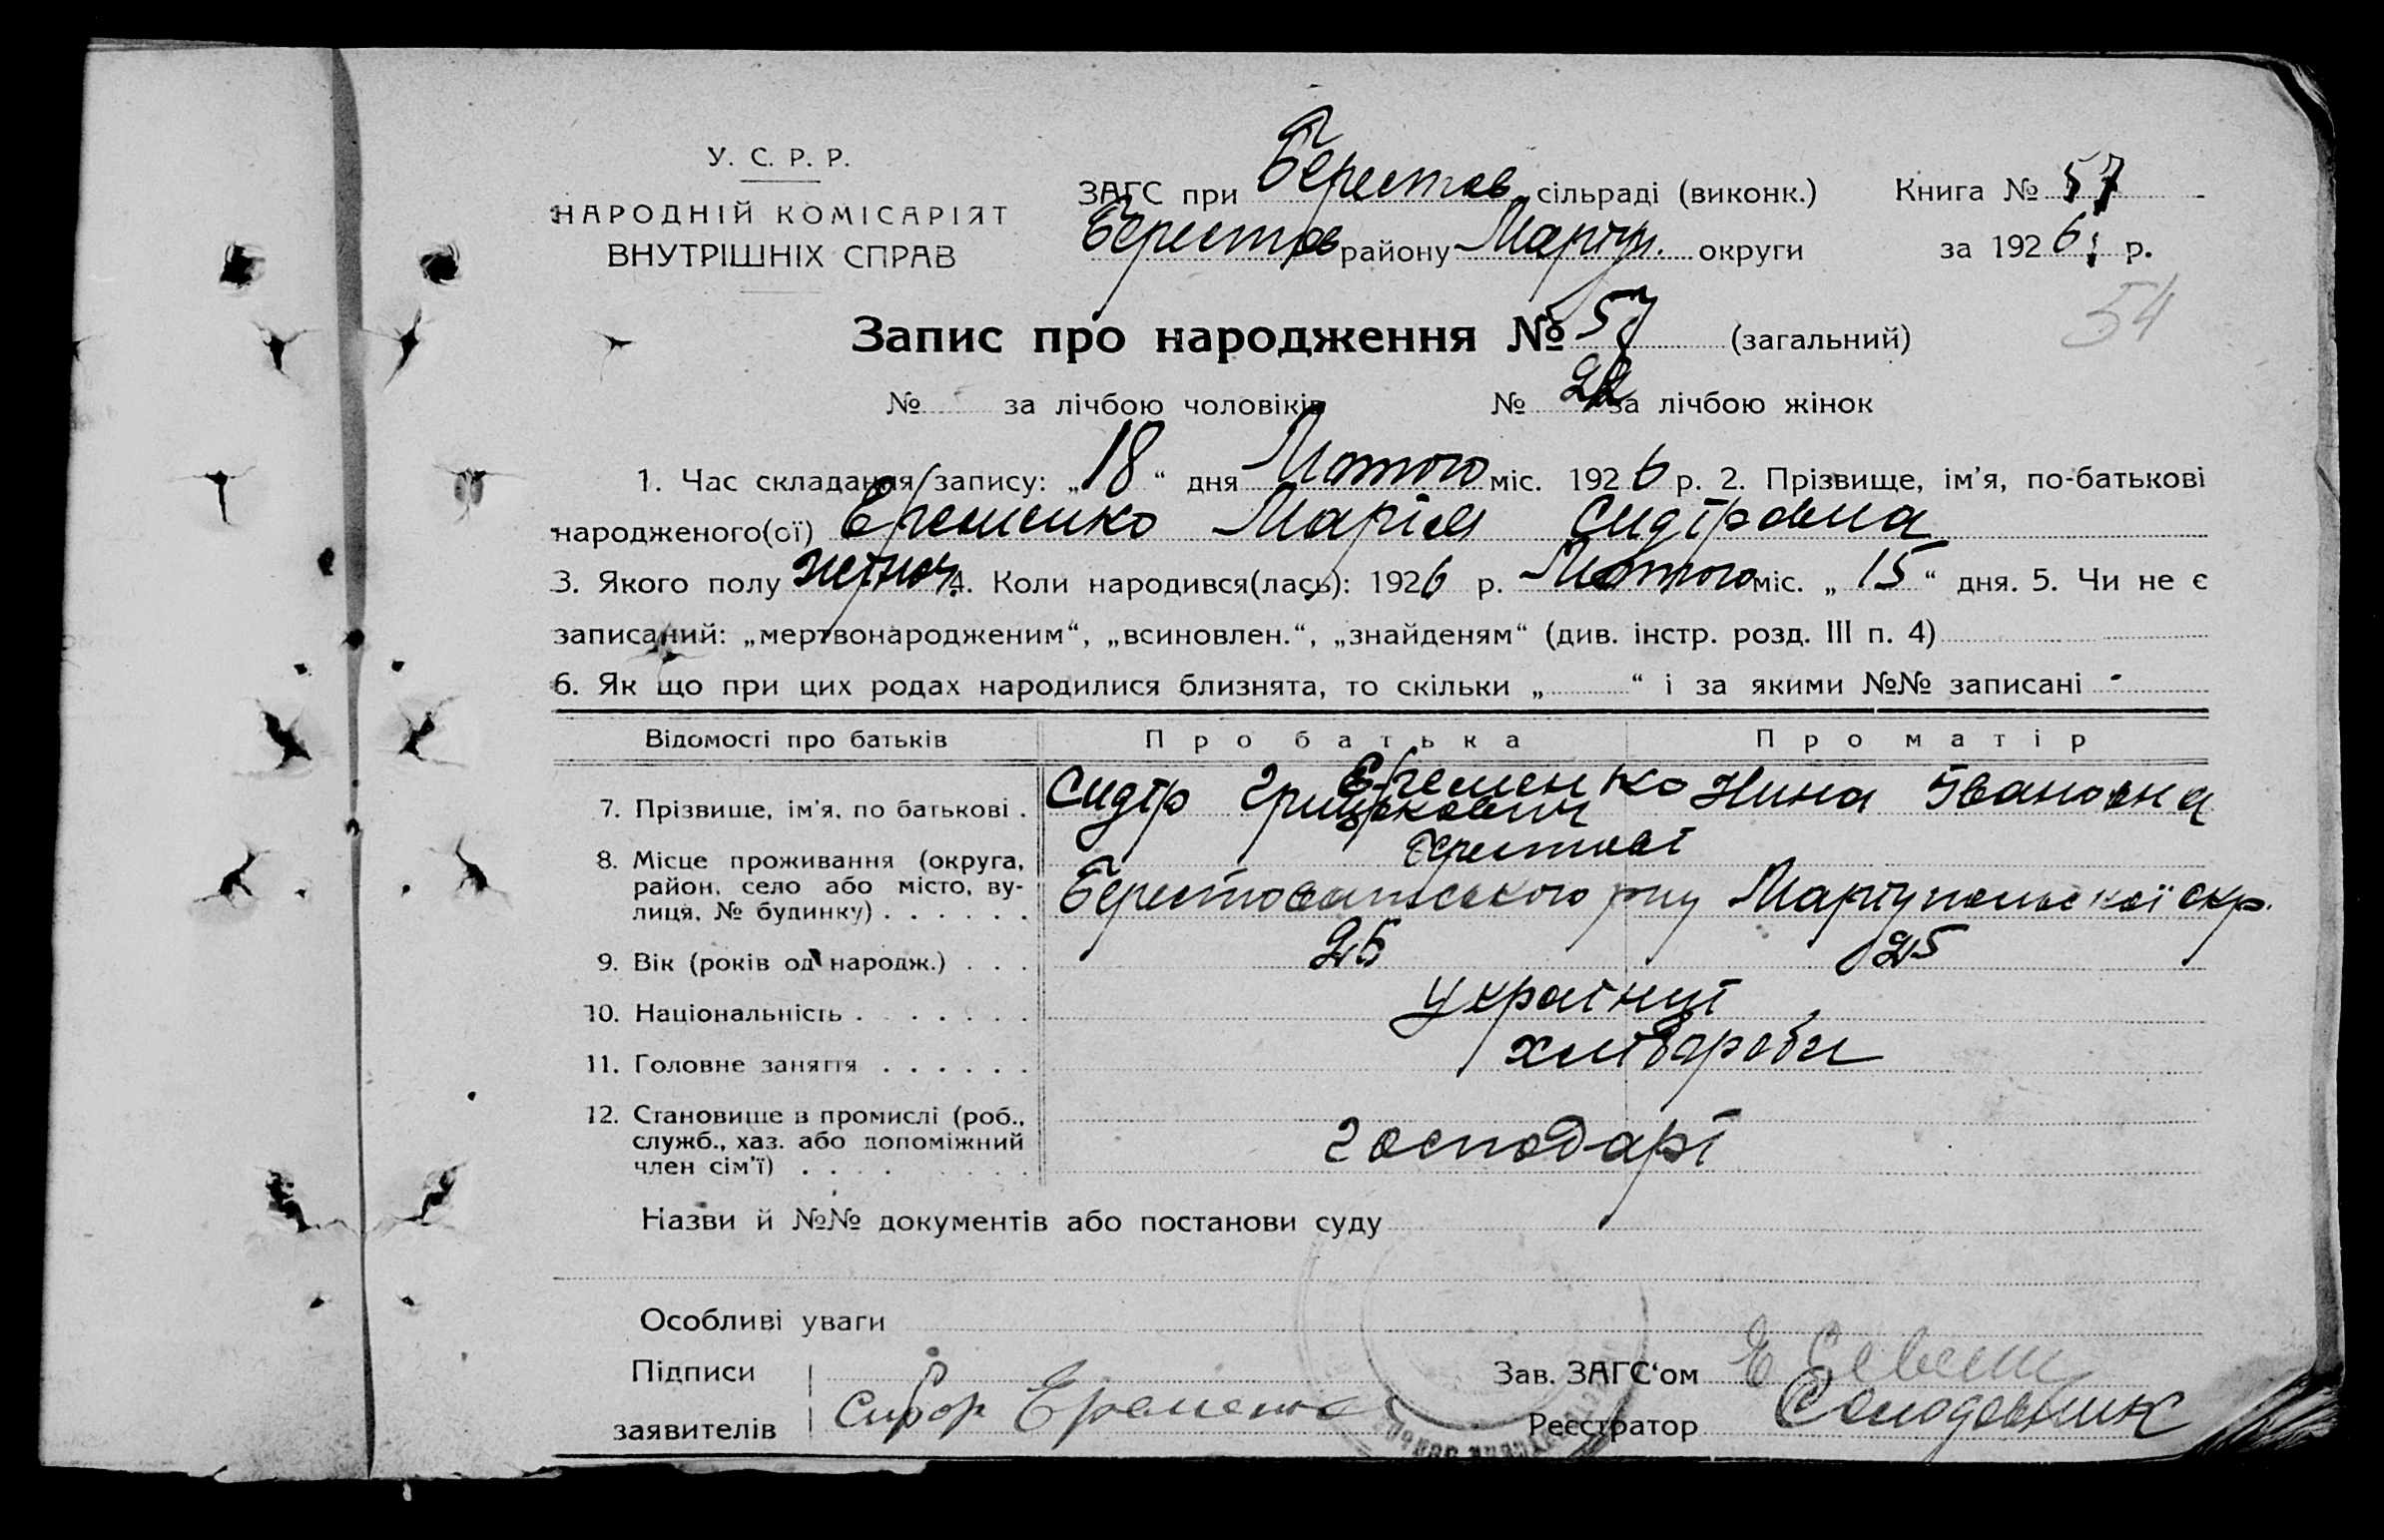 У. С. Р. Р.
НАРОДНІЙ КОМІСАРІЯТ
ВНУТРІШНІХ СПРАВ
ЗАГС при Берестов сільраді (виконк.) Книга № 57
Берестов району Маріуп. округи за 1926 р.
54
Запис про народження № 57 (загальний)
№ за лічбою чоловіків № 22 за лічбою жінок
1. Час складання запису: „18“ дня Лютого міс. 1926 р. 2. Прізвище, ім’я, по-батькові
народженого(ої) Еременко Марія Сидіровна
3. Якого полу жіноч. 4. Коли народився(лась): 1926 р. Лютого міс. „15“ дня. 5. Чи не є
записаний: „мертвонародженим“, „всиновлен.“, „знайденям“ (див. інстр. розд. III п. 4)
6. Як що при цих родах народилися близнята, то скільки „ “ і за якими №№ записані -
Відомості про батьків Про батька Про матір
Еременко
7. Прізвище, ім’я, по батькові . Сидір Грицькович Нина Івановна
8. Місце проживання (округа,
район, село або місто, ву-
лиця, № будинку) . . . . . . Берестоватського р-ну Маріупольської окр.
9. Вік (років од народж.) . . . 25 25
10. Національність . . . . . . . українці
11. Головне заняття . . . . . . хлібороби
12. Становище в промислі (роб.,
служб., хаз. або допоміжний
член сім’ї) . . . . . . . . господарі
Назви й №№ документів або постанови суду
Особливі уваги
Підписи Зав. ЗАГС‘ом
заявителів Сидор Еременко Реєстратор Солодовник